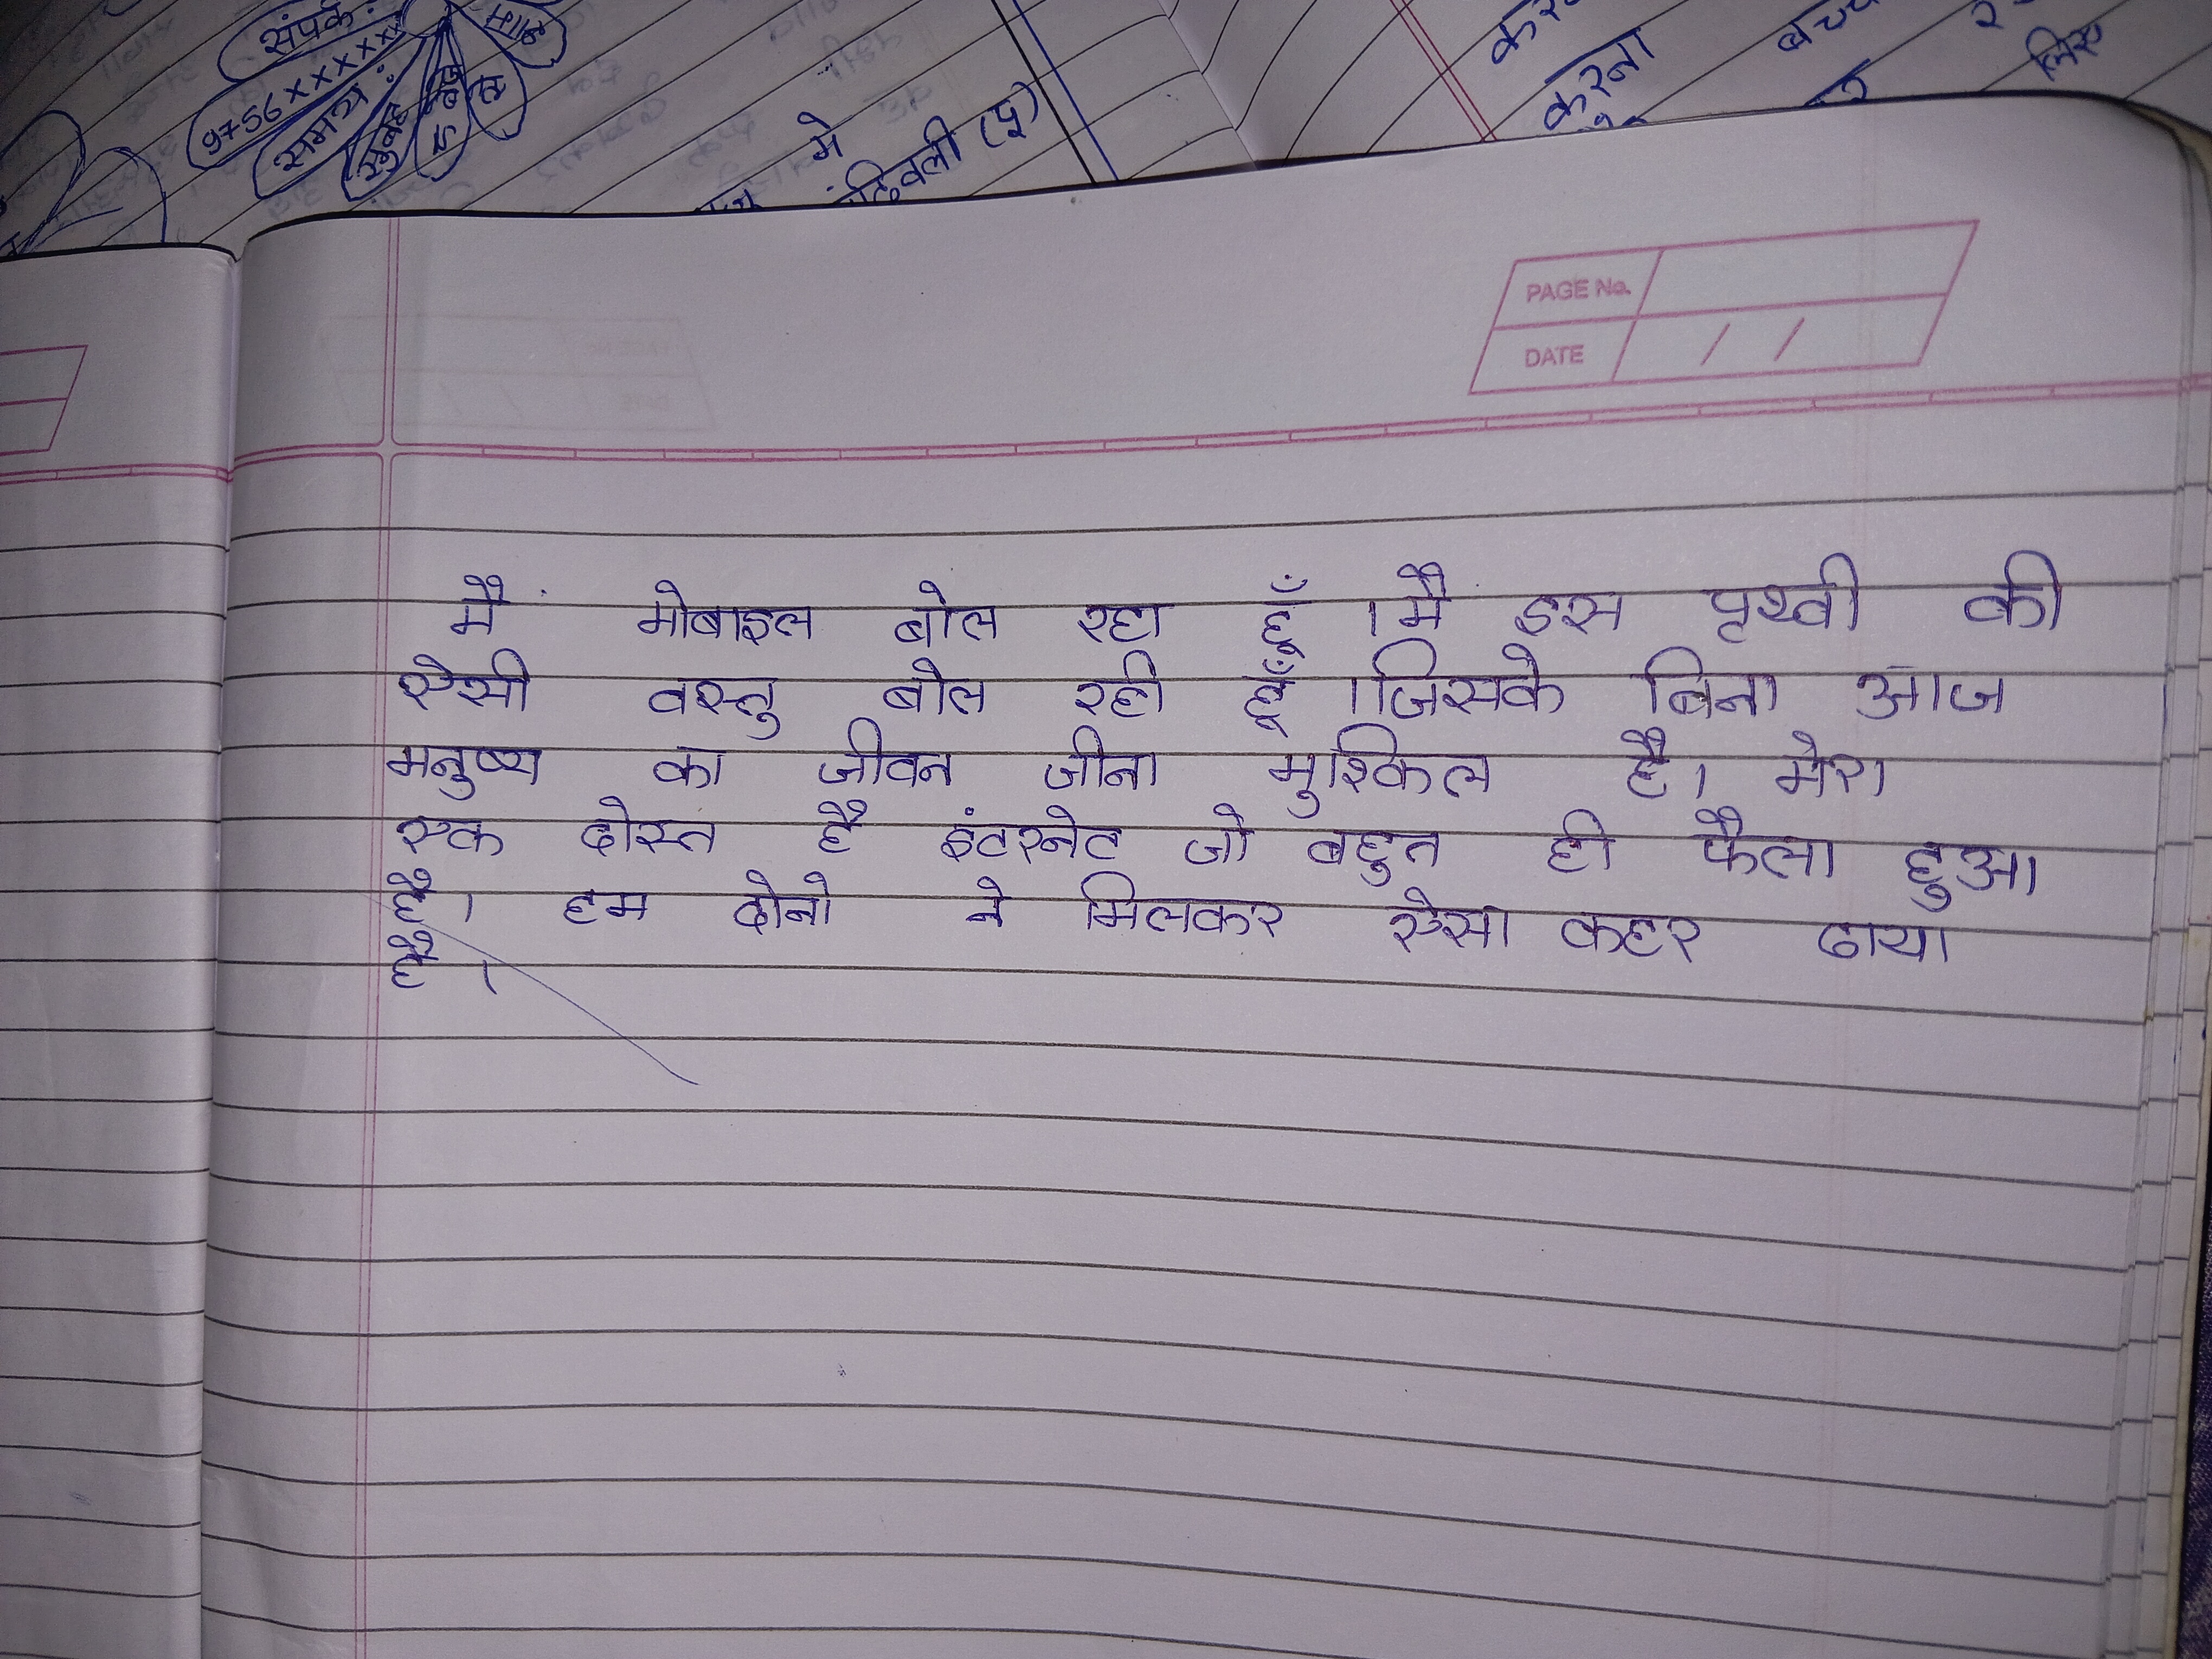 संपर्क:
9756xxxxxx
समय:
सुबह
मे
(पू)
करना
PAGE No.
DATE / /
मैं मोबाइल बोल रहा हूँ । मै इस पृथ्वी की
ऐसी वस्तु बोल रही हूँ । जिसके बिना आज
मनुष्य का जीवन जीना मुश्किल है । मेरा
एक दोस्त है इंटरनेट जो बहुत ही फैला हुआ
है । हम दोनो ने मिलकर ऐसा कहर ढाया
है ।